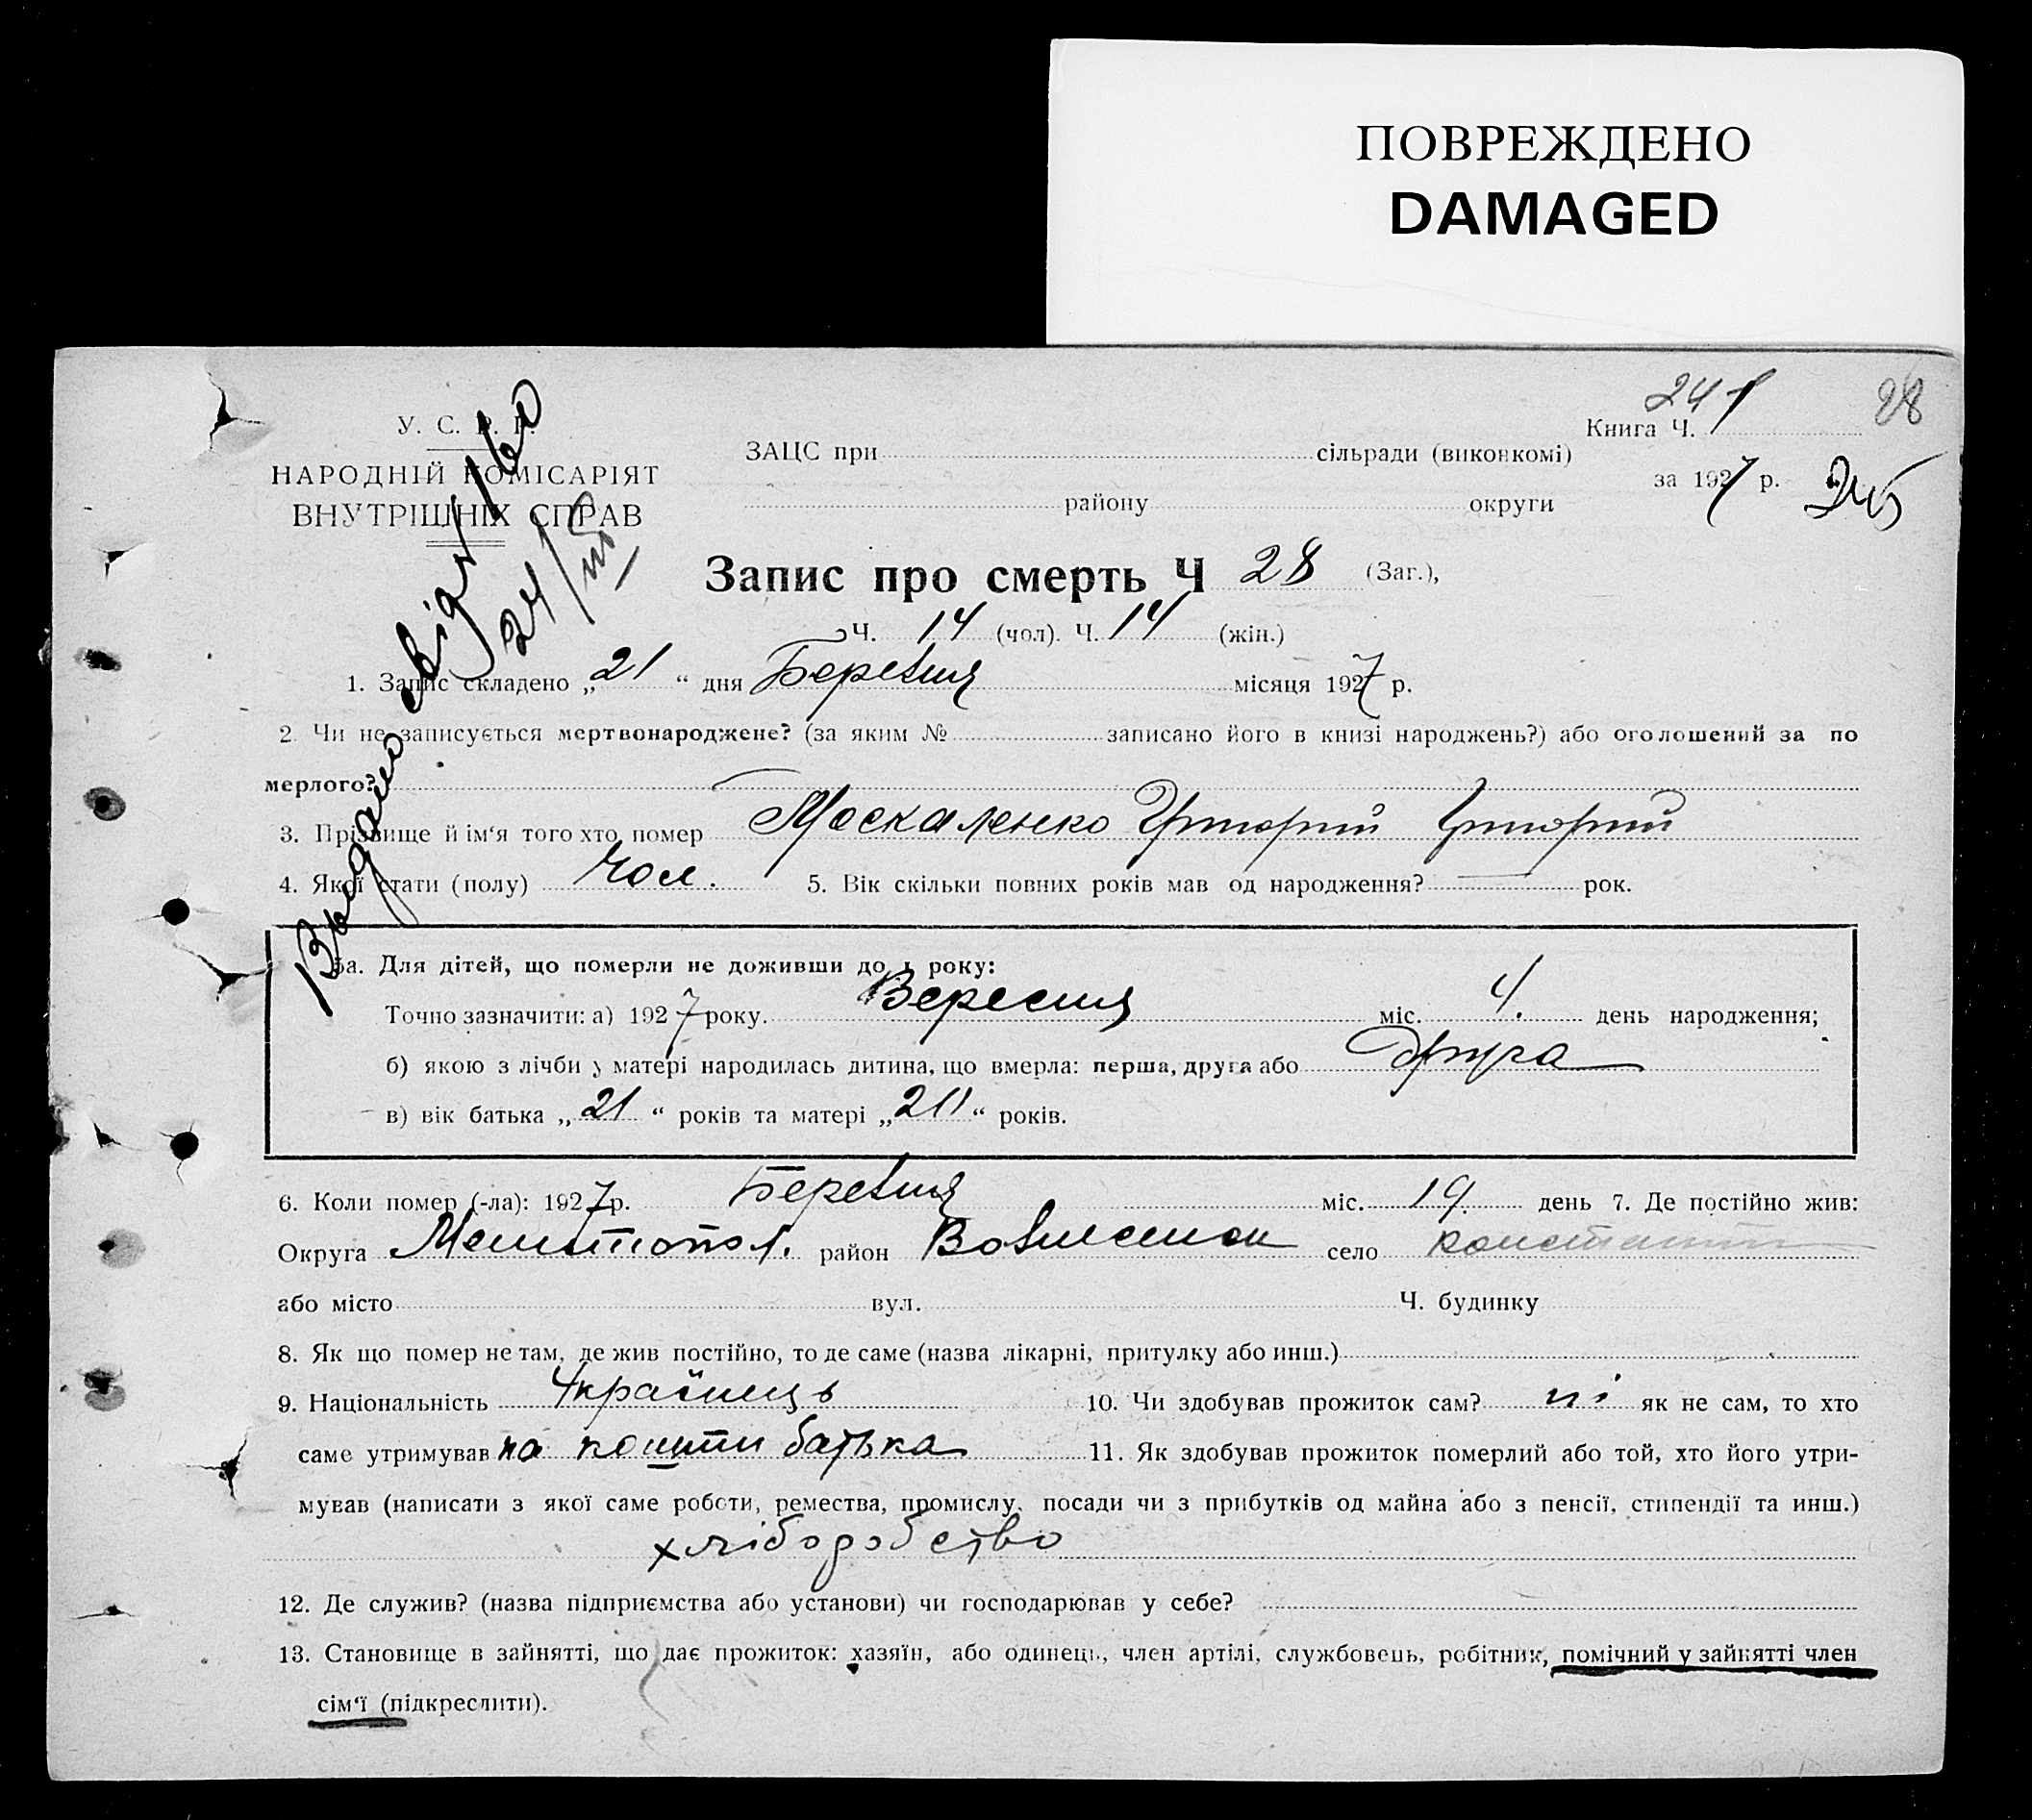 ПОВРЕЖДЕНО
DAMAGED
241
28
У. С. Р. Р.
НАРОДНІЙ КОМІСАРІЯТ
ВНУТРІШНІХ СПРАВ
Видано
24/
ЗАЦС при сільради (виконкомі)
району округи
Книга Ч.
за 1927 р.
Запис про смерть Ч 28 (Заг.),
Ч. 14 (чол). Ч. 14 (жін.)
1. Запис складено „21“ дня Березня місяця 1927 р.
2. Чи не записується мертвонароджене? (за яким № записано його в книзі народжень?) або оголошений за по
мерлого?
3. Прізвище й ім'я того хто помер Москаленко Григорій Григорій
4. Якої стати (полу) Чол. 5. Вік скільки повних років мав од народження? — рок.
5а. Для дітей, що померли не доживши до 1 року:
Точно зазначити: а) 1927 року. Вересня міс. 4. день народження;
б) якою з лічби у матері народилась дитина, що вмерла: перша, друга або друга
в) вік батька „21“ років та матері „ “ років.
6. Коли помер (-ла): 1927 р. Березня міс. 19. день 7. Де постійно жив:
Округа Мелітопол. район село Констант
або місто вул. Ч. будинку
8. Як що помер не там, де жив постійно, то де саме (назва лікарні, притулку або инш.)
9. Національність Українець 10. Чи здобував прожиток сам? ні як не сам, то хто
саме утримував на кошти батька 11. Як здобував прожиток померлий або той, хто його утри-
мував (написати з якої саме роботи, ремества, промислу, посади чи з прибутків од майна або з пенсії, стипендії та инш.)
хліборобство
12. Де служив? (назва підприємства або установи) чи господарював у себе?
13. Становище в зайнятті, що дає прожиток: хазяїн, або одинець, член артілі, службовець, робітник, помічний у зайнятті член
сім'ї (підкреслити).